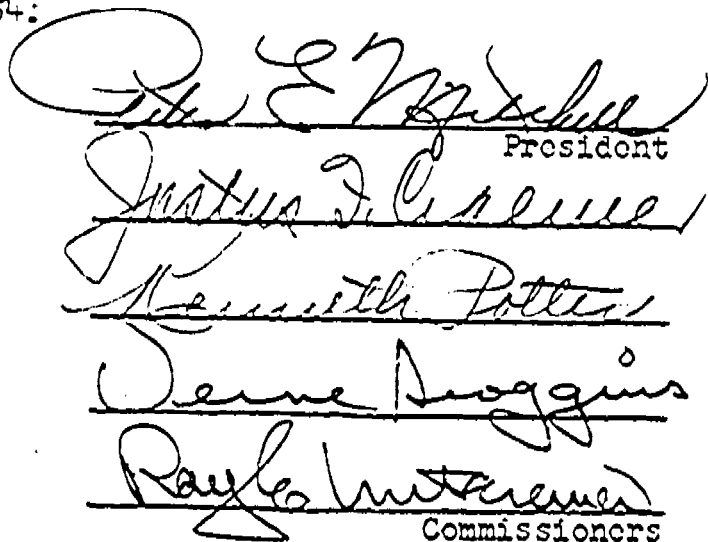 54:
Peter E Mitchell
President
Justus F. Craemer
Kenneth Potter
Verne Scoggins
Ray E Untereiner
Commissioners